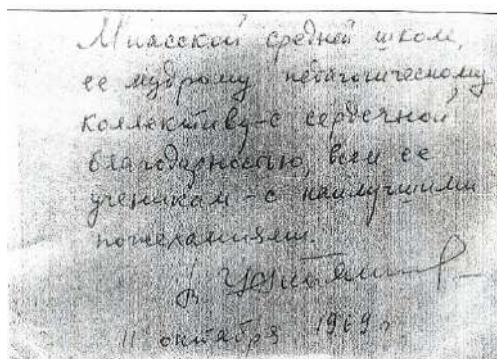 Миасской средней школе,
ее мудрому педагогическому
коллективу - с сердечной
благодарностью, всем ее
ученикам - с наилучшими
пожеланиями.
11 октября 1969 г.